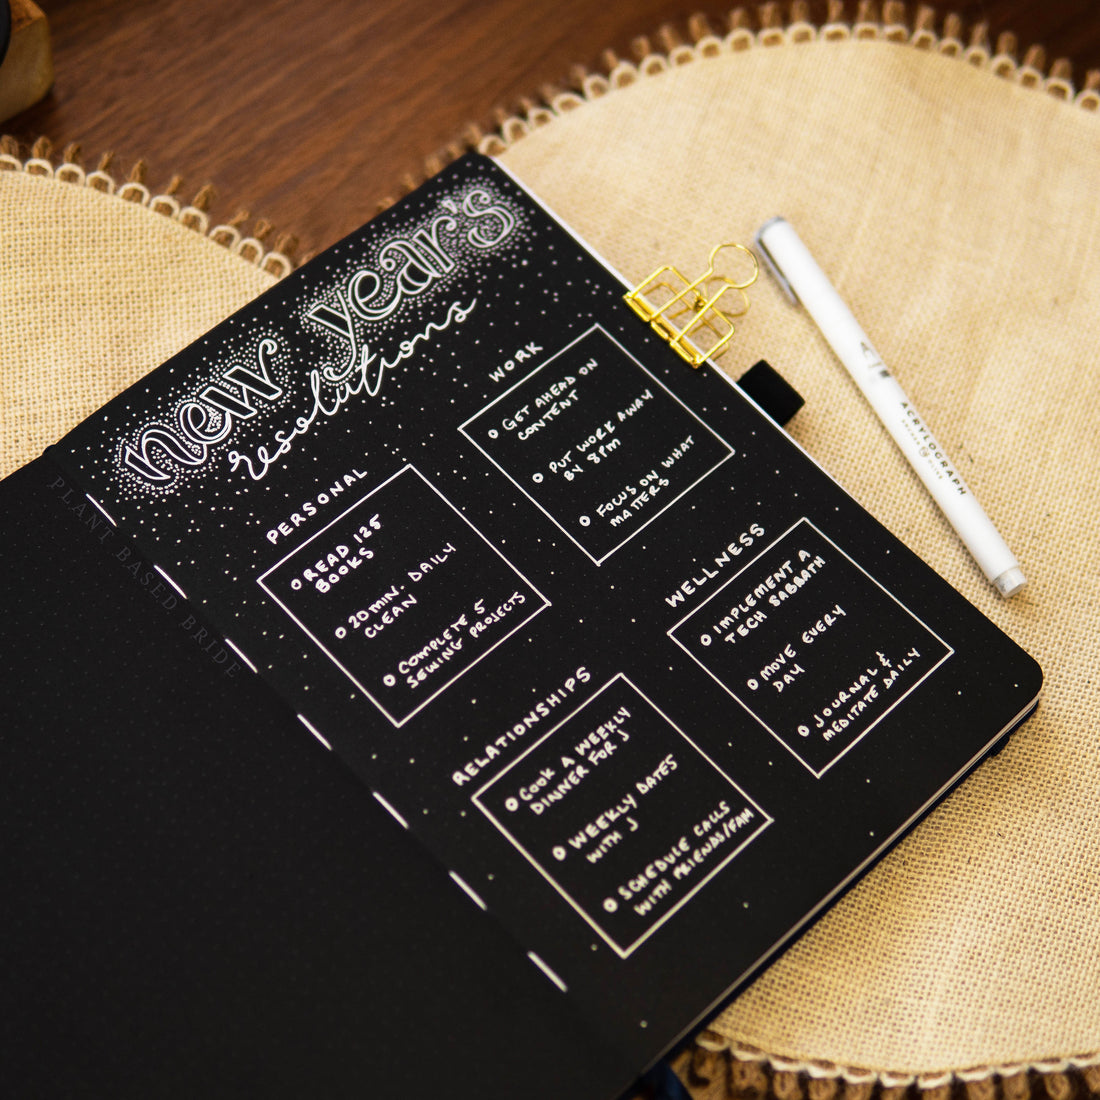 new year's
resolutions
PERSONAL
READ 125
BOOKS
20 MIN. DAILY
CLEAN
COMPLETE 5
SEWING PROJECTS
WORK
GET AHEAD ON
CONTENT
PUT WORK AWAY
BY 8PM
FOCUS ON WHAT
MATTERS
RELATIONSHIPS
COOK A WEEKLY
DINNER FOR J
WEEKLY DATES
WITH J
SCHEDULE CALLS
WITH FRIENDS/FAM
WELLNESS
IMPLEMENT A
TECH SABBATH
MOVE EVERY
DAY
JOURNAL &
MEDITATE DAILY
PLANT BASED BRIDE
ACRYLOGRAPH